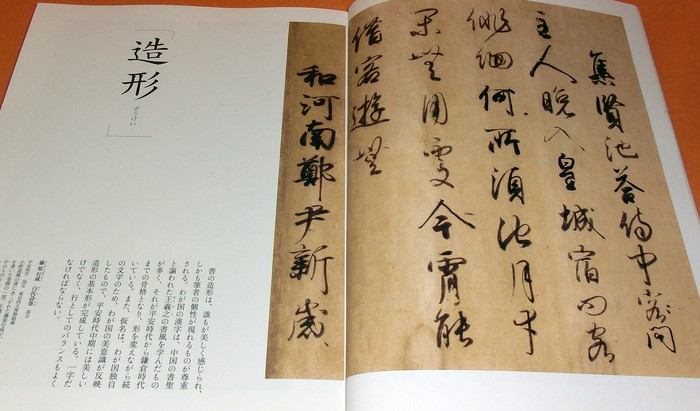 集賢池答侍中客問
主人晩入皇城宿問客
徘徊何所須池月幸
閑無用處今霄能
借客遊無
和河南鄭尹新歳
造形
ぞうけい
書の造形は、誰もが美しく感じられ、
しかも筆者の個性が現れるものが尊重
される。わが国の漢字は、中国の書聖
と謳われた王羲之の書風を学んだもの
が多く、それが平安時代から鎌倉時代
までの骨格となり、形を変えながら続
いている。また、仮名は、わが国独自
の文字のため、わが国の美意識が反映
したもので、平安時代中期には美しい
造形の基本形が完成している。一字だ
けでなく、行としてのバランスもよく
なければならない。
藤原行成 白氏詩巻